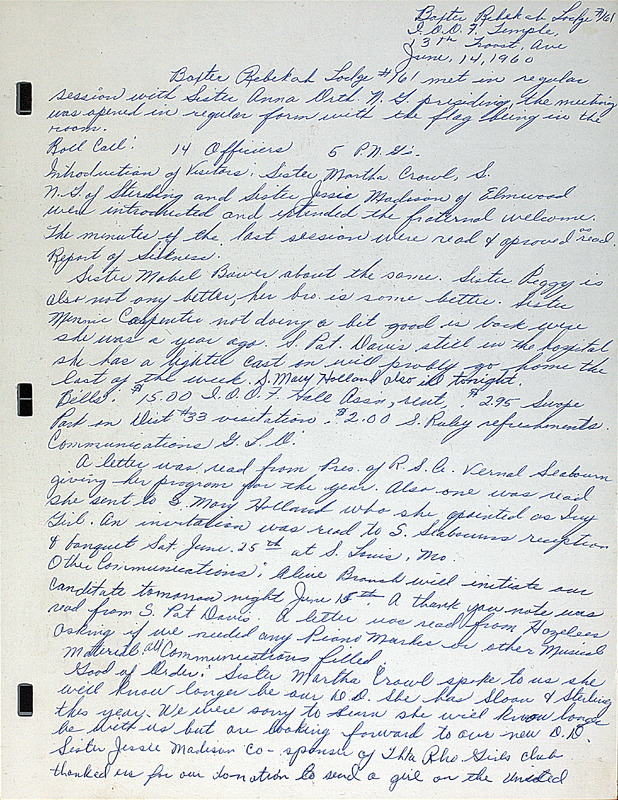 Baxter Rebekah Lodge #161
I.O.O.F. Temple,
13th Troost, Ave
June, 14, 1960
Baxter Rebekah Lodge #161 met in regular
session with Sister Anna Orth. N.G. presiding, the meeting
was opened in regular form with the flag being in the
room.
Roll Call: 14 Officers 5 P.N.G's.
Introduction of Visitors: Sister, Martha Crowl, S.
N.G of Sterling and Sister Jessie Madison of Elmwood
were introduced and extended the fraternal welcome.
The minutes of the last session were read & aproved as read.
Report of Sickness.
Sister Mabel Bower about the same. Sister Peggy is
also not any better, her bro. is some better. Sister
Minnie Carpenter not doing a bit good is back were
she was a year ago. S. Pat. Davis still in the hospital
she has a lighter cast on will probly go home the
last of the week. S. Mary Holland also ill tonight.
Bills: $15.00 I.O.O.F. Hall Assn, rent, $2.95 Sunge
Past on Dist #33 visitation, $2.00 S. Ruley refreshments.
Communications
A letter was read from Pres. of R.S.A. Vernal Seabourn
giving her program for the year. Also one was read
she sent to S. Mary Holland who she apointed as
An invitation was read to S. Seabourns reception
& banquet Sat. June. 25th at S. Louis, Mo.
Other Communications: Alice Branch will initiate our
canditate tomorrow night June 15th. A thank you note was
read from S. Pat Davis. A letter was read from
asking if we needed any Piano Marches or other Musical
Material all Communications filled
Good of Order: Sister Martha Crowl spoke to us she
will know longer be our D.D. She has Sloan & Sterling
this year. We were sorry to learn she will know longe
be with us but are looking forward to our new D.D
Sister Jessie Madison co-sponser of Thta Rho Girls club
thanked us for our donation to send a girl on the United